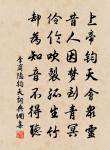 上帝钧天會眾靈
昔人因夢到青冥
伶倫吹裂孤生竹
卻為知音不得聽
李商隱钧天詞典網書